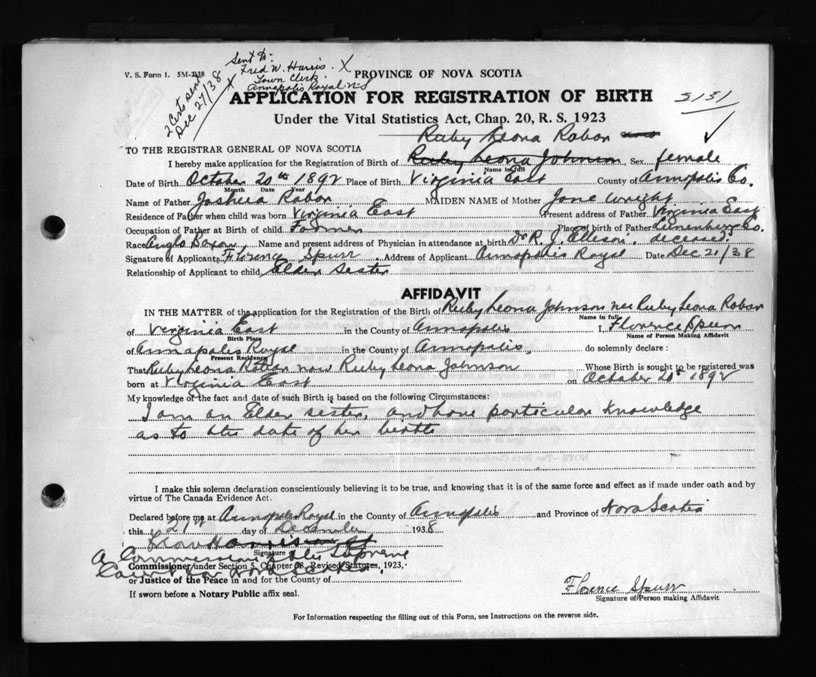 V. S. Form 1. 5M-
Sent to:
Fred W. Harris. X
Town Clerk.
Annapolis Royal N.S
X
2 Certs sent
Dec 27/38
PROVINCE OF NOVA SCOTIA
APPLICATION FOR REGISTRATION OF BIRTH
5151
Under the Vital Statistics Act, Chap. 20, R. S. 1923
Ruby Leona Robar
TO THE REGISTRAR GENERAL OF NOVA SCOTIA
I hereby make application for the Registration of Birth of Ruby Leona Johnson Sex female
Name in full
Date of Birth October 20th 1892 Place of Birth Virginia East County of Annapolis Co.
Month Date Year
Name of Father Joshua Robar MAIDEN NAME of Mother Jane Wright
Residence of Father when child was born Virginia East Present address of Father Virginia East
Occupation of Father at Birth of child Farmer Place of birth of Father Lunenburg Co.
Race Anglo Saxon Name and present address of Physician in attendance at birth Dr R. J. Ellison. deceased
Signature of Applicant Florence Spurr Address of Applicant Annapolis Royal Date Dec 21/38
Relationship of Applicant to child Elder Sister
AFFIDAVIT
IN THE MATTER of the application for the Registration of the Birth of Ruby Leona Johnson nee Ruby Leona Robar
Name in full
of Virginia East in the County of Annapolis I, Florence Spurr
Birth Place Name of Person Making Affidavit
of Annapolis Royal in the County of Annapolis, do solemnly declare:
Present Residence
That Ruby Leona Robar now Ruby Leona Johnson Whose Birth is sought to be registered was
born at Virginia East on October 20th 1892
My knowledge of the fact and date of such Birth is based on the following Circumstances:
I am an Elder sister, and have particular knowledge
as to the date of her birth
I make this solemn declaration conscientiously believing it to be true, and knowing that it is of the same force and effect as if made under oath and by
virtue of The Canada Evidence Act.
Declared before me at Annapolis Royal in the County of Annapolis and Province of Nova Scotia
this 21st day of December 1938
Signature
A Commissioner of the Supreme
Commissioner under Section 5, Chapter 38, Revised Statutes, 1923,
Court for Nova Scotia.
or Justice of the Peace in and for the County of
If sworn before a Notary Public affix seal.
Florence Spurr
Signature of Person making Affidavit
For Information respecting the filling out of this Form, see Instructions on the reverse side.